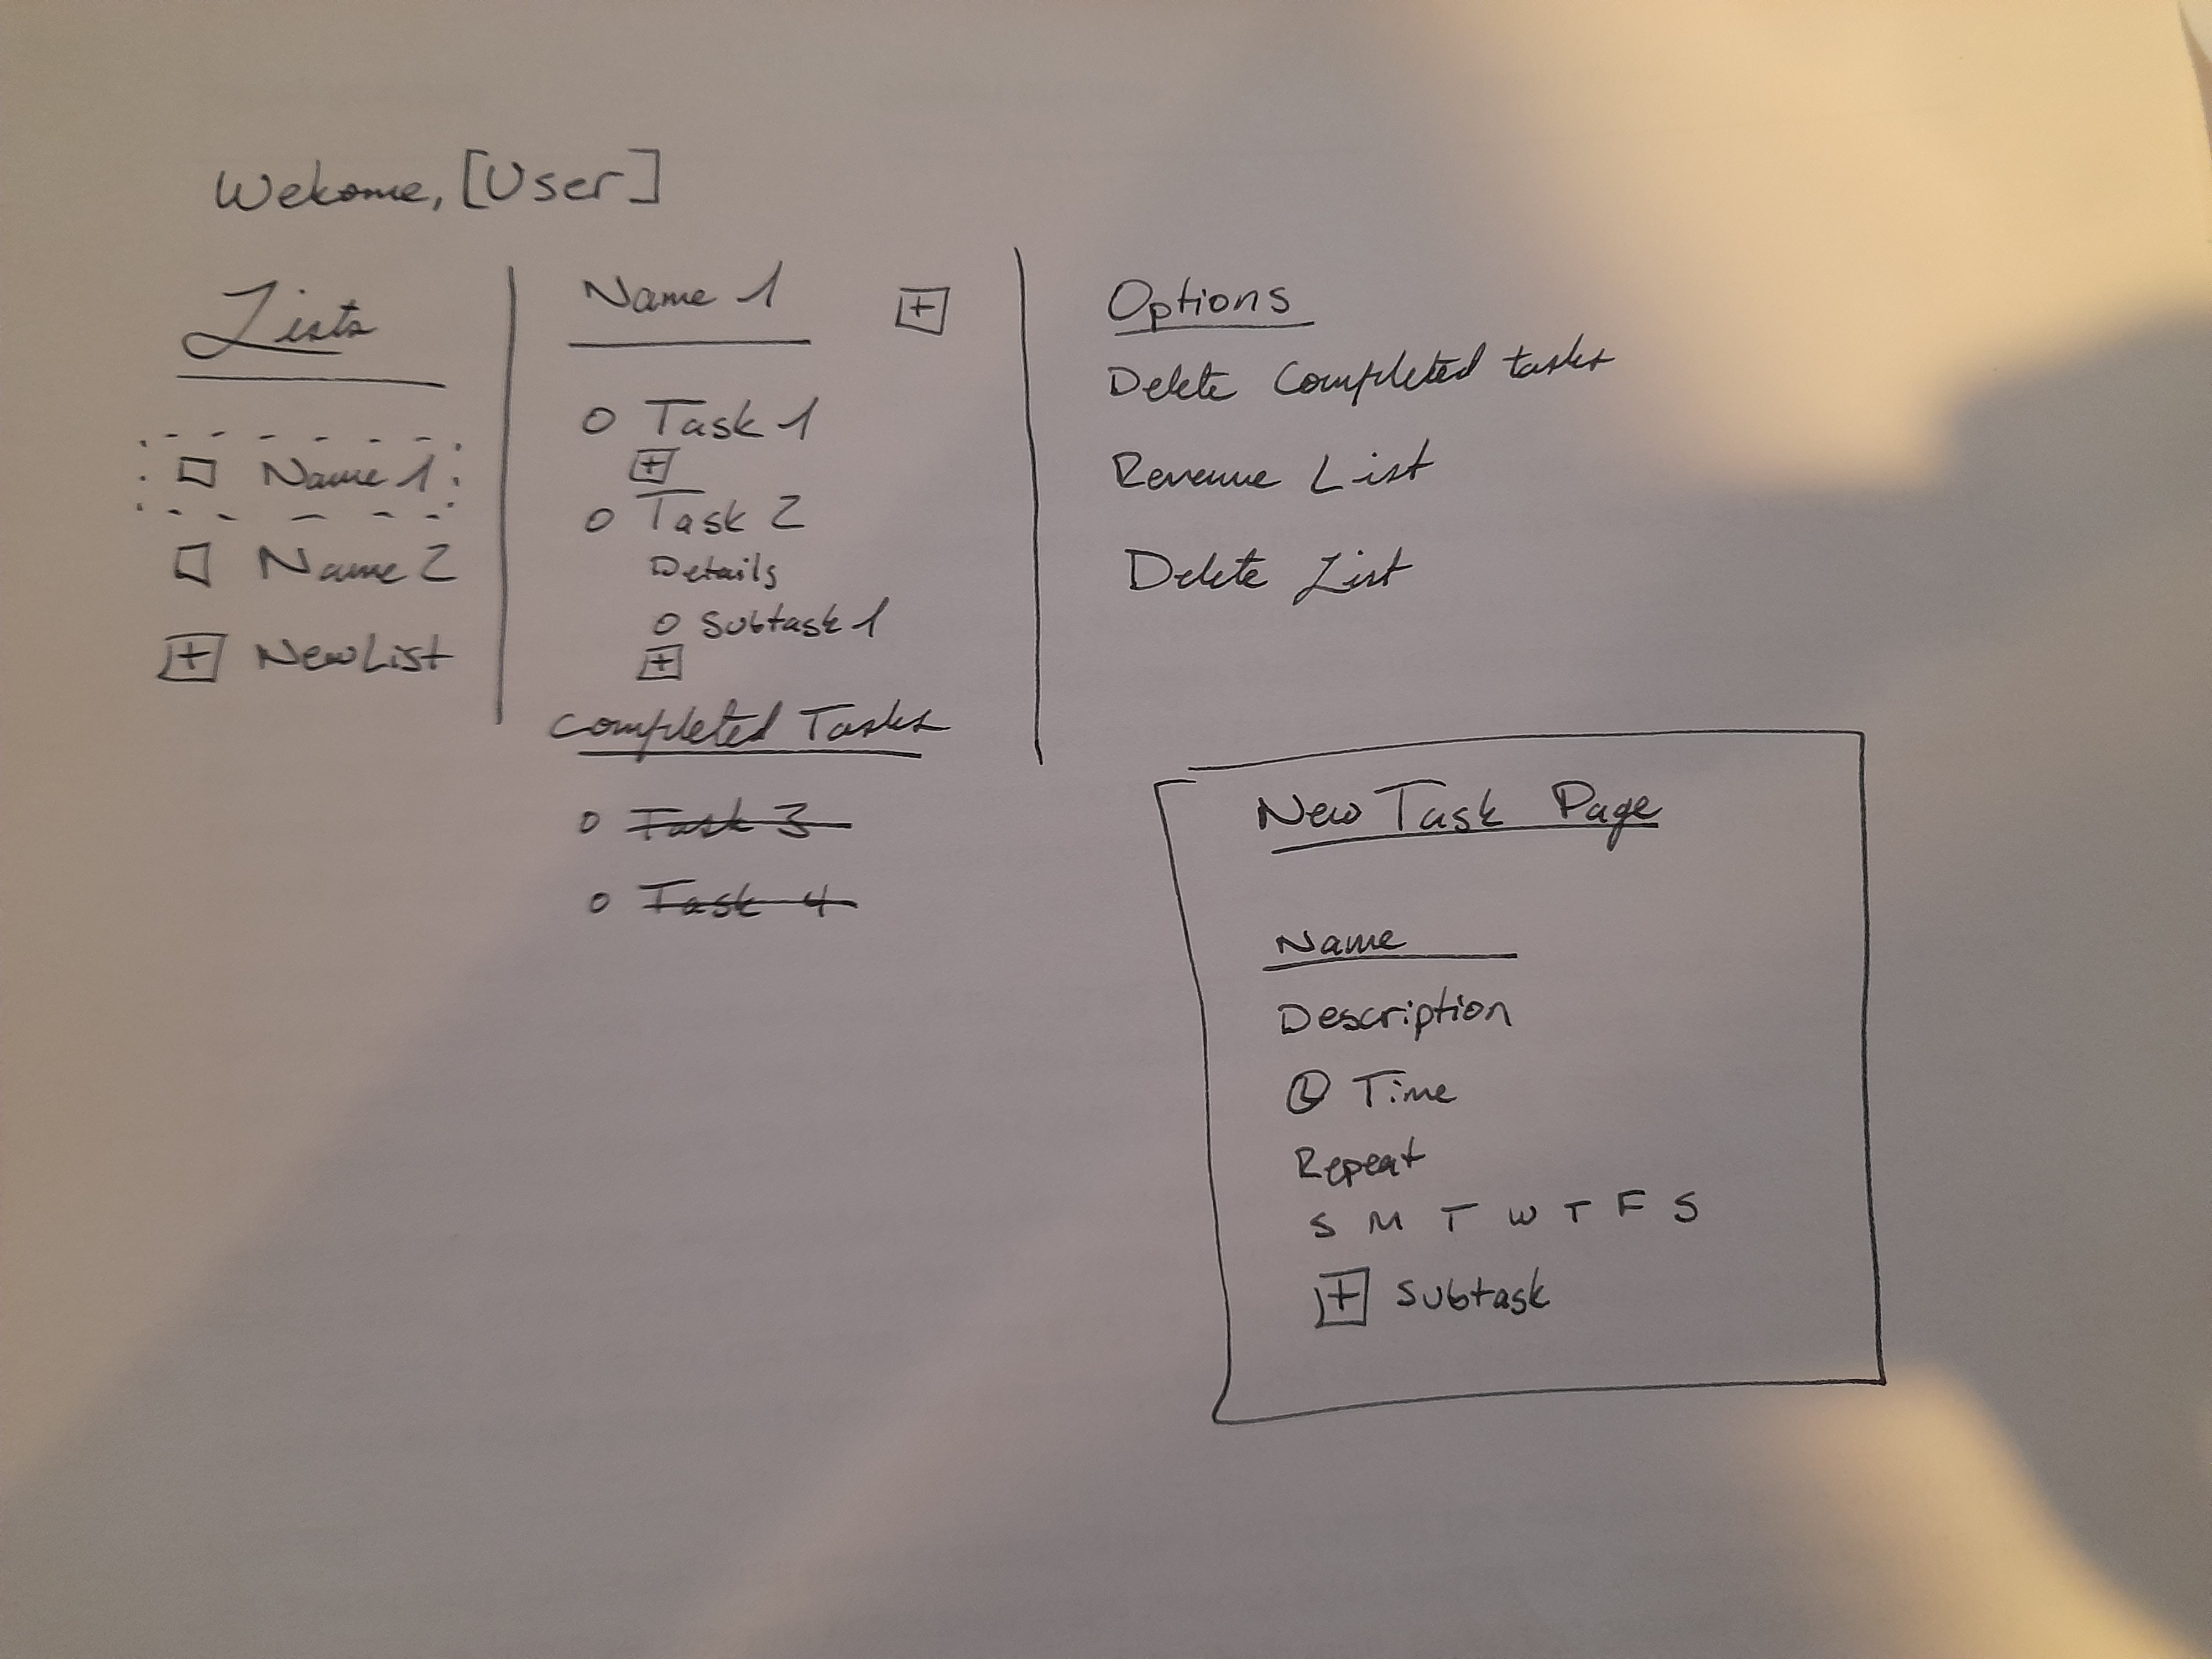 Welcome, [User]
Lists
Name 1
Name 2
+ New List
Name 1 +
Task 1
+
Task 2
Details
Subtask 1
+
Completed Tasks
Task 3
Task 4
Options
Delete Completed tasks
List
Delete List
New Task Page
Name
Description
Time
Repeat
S M T W T F S
+ Subtask